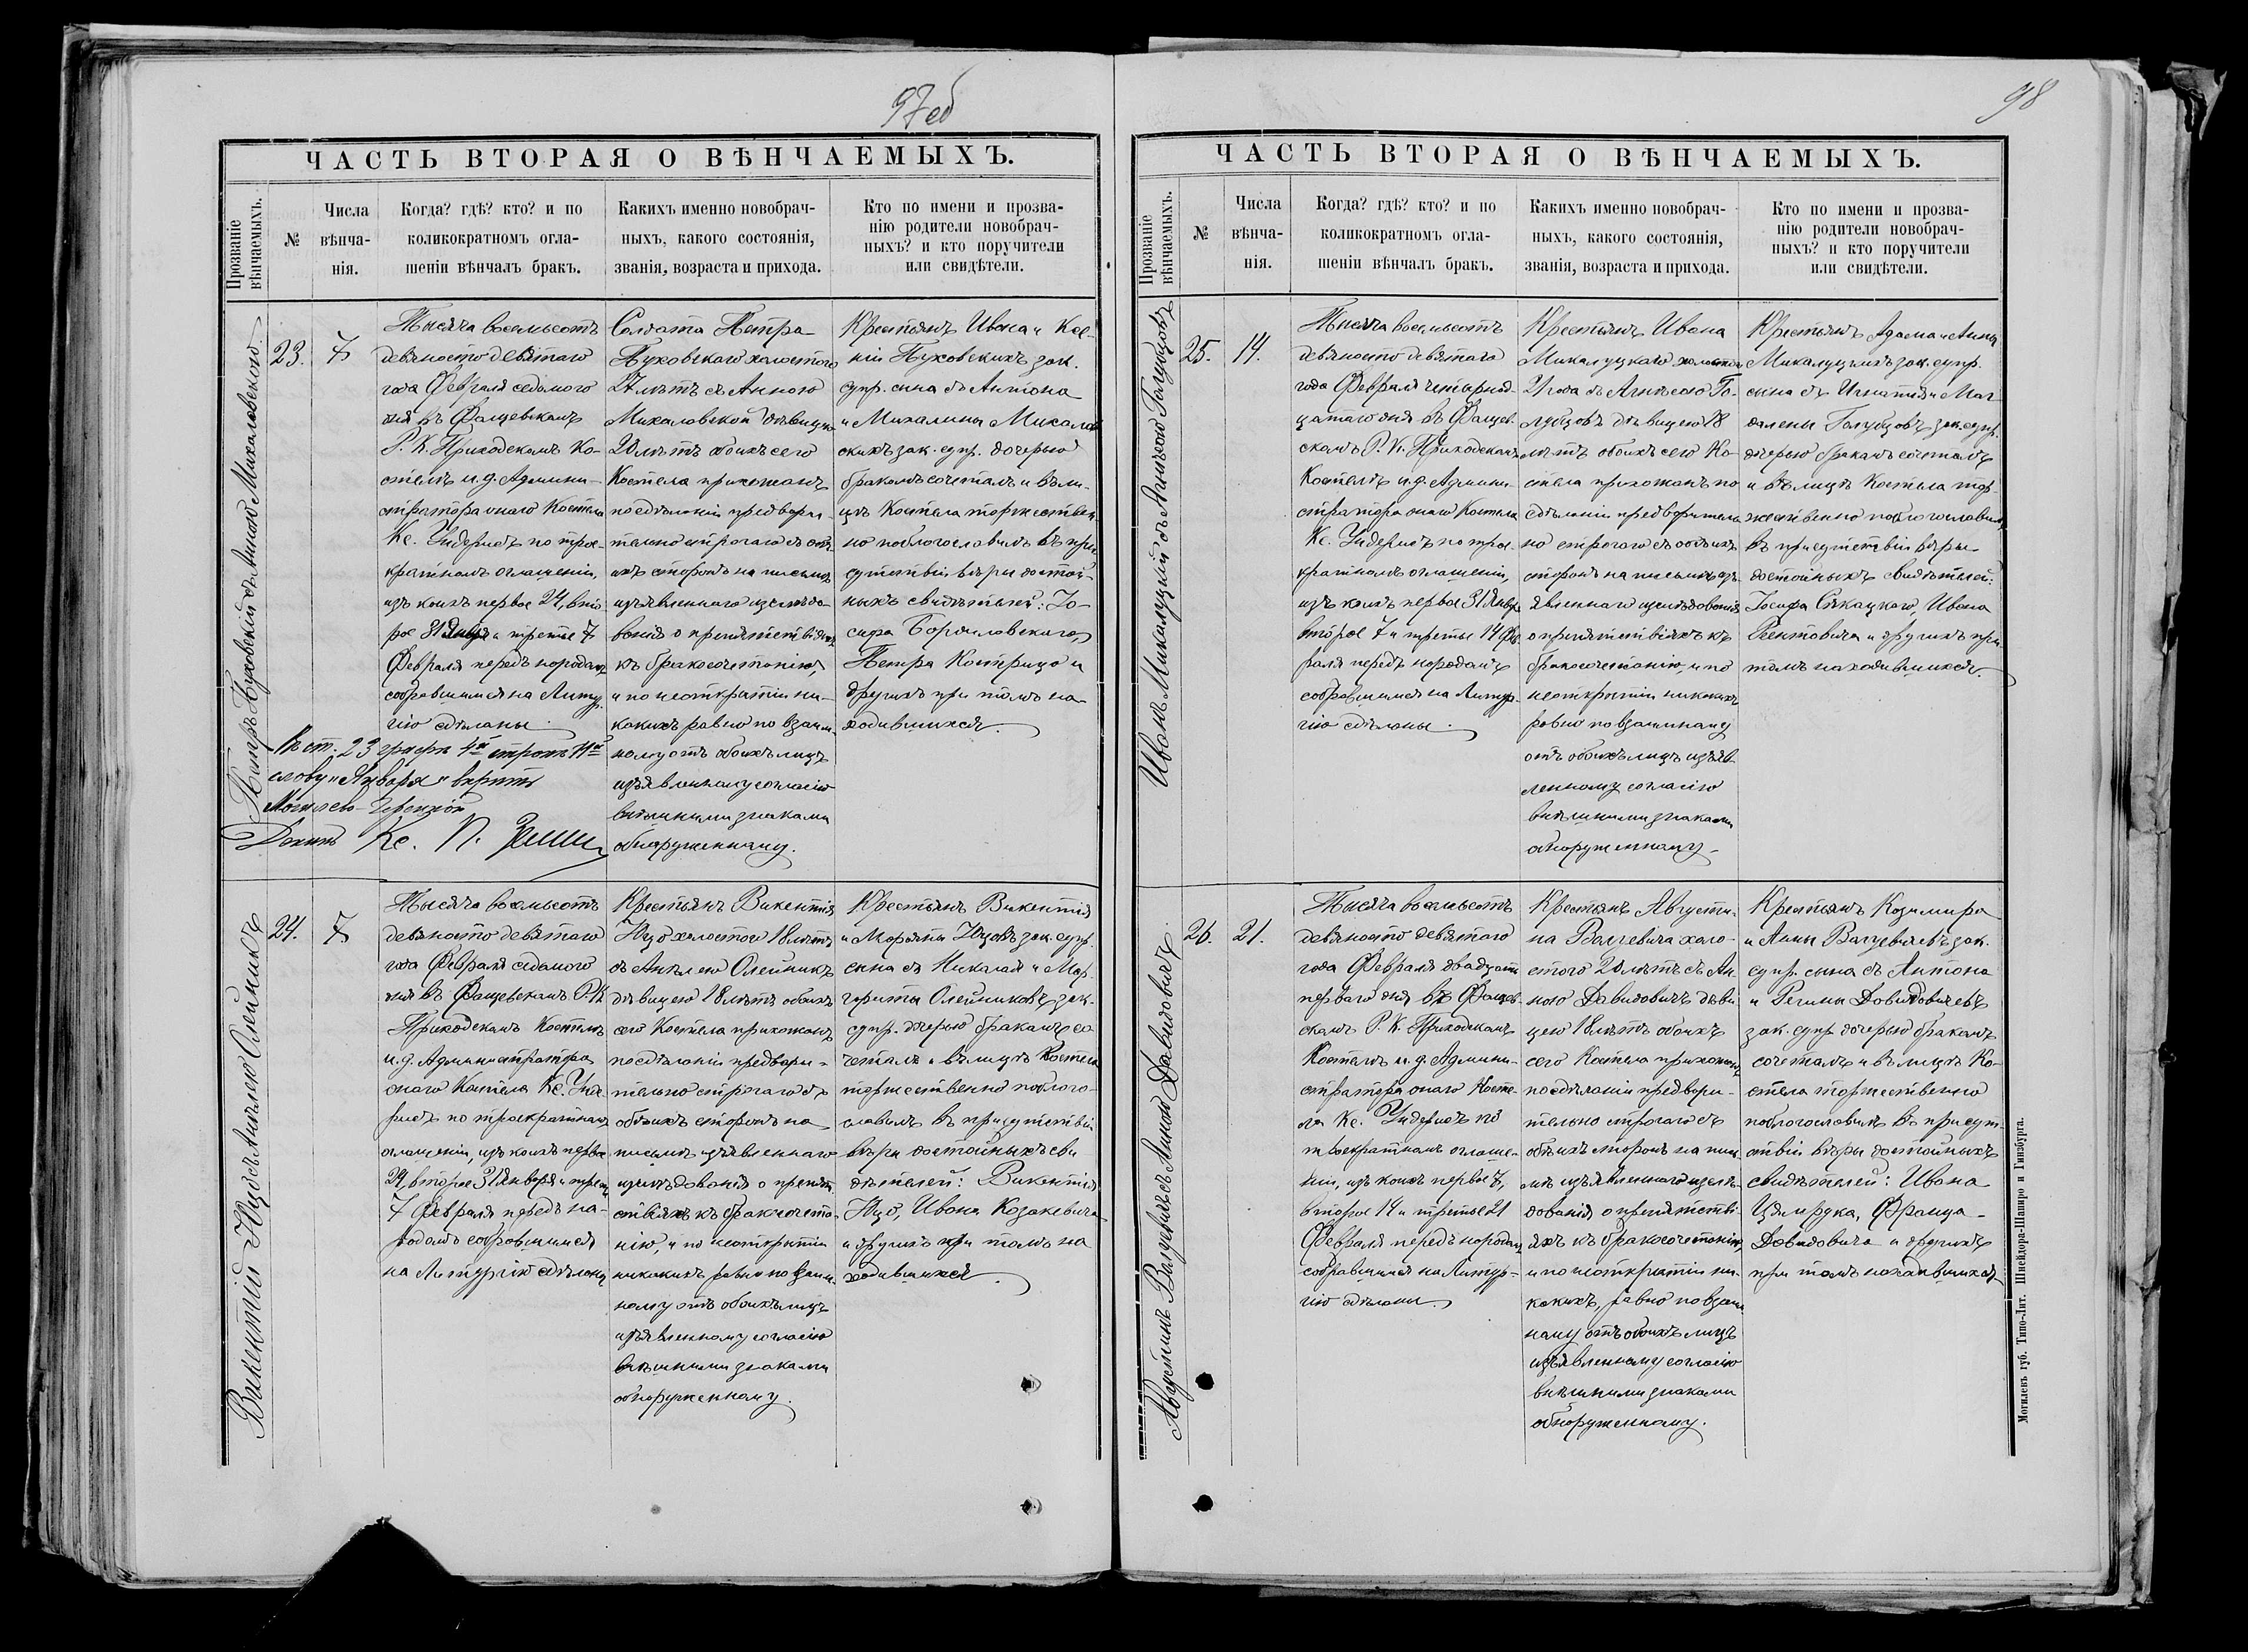 97об
ЧАСТЬ ВТОРАЯ О ВѢНЧАЕМЫХЪ.
Прозваніе вѣнчаемыхъ.
№
Числа вѣнча-
нія.
Когда? гдѣ? кто? и по
коликократномъ огла-
шеніи вѣнчалъ бракъ.
Какихъ именно новобрач-
ныхъ, какого состоянія,
званія, возраста и прихода.
Кто по имени и прозва-
нію родители новобрач-
ныхъ? и кто поручители
или свидѣтели.
Петръ Пуховскій съ Анною Михаловскою
23.
7
Тысяча восемьсотъ
девяносто девятаго
года Февраля седьмого
дня въ Фащевскомъ
Р. К. Приходскомъ Ко-
стелѣ и. д. Админи-
стратора онаго Костела
Кс. по трое-
кратномъ оглашеніи,
изъ коихъ первое 24, вто
рое 31 Января и третье 7
Февраля передъ народомъ
собравшимся на Литур
гію сдѣланы.
Солдата Петра
Пуховскаго холостого
27 лѣтъ съ Анною
Михаловской дѣвицею
20 лѣтъ обоихъ сего
Костела прихожанъ
по сдѣланіи предвари-
тельно строгаго съ обѣ
ихъ сторонъ на письмѣ
изъявленнаго изслѣдо-
ванія о препятствіяхъ
къ бракосочетанію,
и по неоткрытіи ни-
какихъ равно по взаим-
ному отъ обоихъ лицъ
изъявленному согласію
внѣшними знаками
обнаруженному.
Крестьянъ Ивана и Ксе-
ніи Пуховскихъ зак.
супр. сына съ Антона
и Михалины Михалов
скихъ зак. супр. дочерью
бракомъ сочеталъ и въ ли-
цѣ Костела торжествен-
но поблогословилъ въ при
сутствіи вѣры достой-
ныхъ свидѣтелей: Іо-
сифа
Петра Кострицо и
другихъ при томъ на-
ходившихся.
Въ ст. 23 графѣ 4й строкѣ 11й
слову „Января“ вѣрить
Могилево-
Деканъ Кс. П.
Викентій Юцо съ Анѣлею Олейникъ
24.
7
Тысяча восемьсотъ
девяносто девятаго
года Февраля седьмого
дня въ Фащевскомъ Р. К
Приходскомъ Костелѣ
и. д. Администратора
онаго Костела Кс.
по троекратномъ
оглашеніи, изъ коихъ первое
24, второе 31 Января и третье
7 Февраля передъ на-
родомъ собравшимся
на Литургію сдѣланы
Крестьянъ Викентія
Юцо холостого 18 лѣтъ
съ Анѣлею Олейникъ
дѣвицею 18 лѣтъ обоихъ
сего Костела прихожанъ
по сдѣланіи предвари-
тельно строгаго съ
обѣихъ сторонъ на
письмѣ изъявленнаго
изслѣдованія о препят
ствіяхъ къ бракосочета-
нію, и по неоткрытіи
никакихъ равно по взаим-
ному отъ обоихъ лицъ
изъявленному согласію
внѣшними знаками
обнаруженному.
Крестьянъ Викентія
и Марьяны Юцовъ зак. супр.
сына съ Николая и Мар-
гориты Олейниковъ зак.
супр. дочерью бракомъ со
четалъ и въ лицѣ Костела
торжественно поблого-
словилъ въ присутствіи
вѣры достойныхъ сви
дѣтелей: Викентія
Юцо, Ивана Козакевича
и другихъ при томъ на
ходившихся.
98
ЧАСТЬ ВТОРАЯ О ВѢНЧАЕМЫХЪ.
Прозваніе вѣнчаемыхъ.
№
Числа вѣнча-
нія.
Когда? гдѣ? кто? и по
коликократномъ огла-
шеніи вѣнчалъ бракъ.
Какихъ именно новобрач-
ныхъ, какого состоянія,
званія, возраста и прихода.
Кто по имени и прозва-
нію родители новобрач-
ныхъ? и кто поручители
или свидѣтели.
Иванъ Микалуцкій съ Голубцовъ
25.
14.
Тысяча восемьсотъ
девяносто девятаго
года Февраля четырнад-
цатаго дня въ Фащев-
скомъ Р. К. Приходскомъ
Костелѣ и. д. Админи-
стратора онаго Костела
Кс. по трое-
кратномъ оглашеніи,
изъ коихъ первое 31 Января
второе 7 и третье 14 Фе-
враля передъ народомъ
собравшимся на Литур-
гію сдѣланы.
Крестьянъ Ивана
Микалуцкаго холостого
21 года съ Го-
лубцовъ дѣвицею 18
лѣтъ обоихъ сего Ко-
стела прихожанъ по
сдѣланіи предваритель
но строгаго съ обѣихъ
сторонъ на письмѣ изъ-
явленнаго изслѣдованія
о препятствіяхъ къ
бракосочетанію, и по
неоткрытіи никакихъ
равно по взаимному
отъ обоихъ лицъ изъяв-
ленному согласію
внѣшними знаками
обнаруженному.
Крестьянъ Адама и Анны
Микалуцкихъ зак. супр.
сына съ Игнатія и Маг
далены Голубцовъ зак. супр.
дочерью бракомъ сочеталъ
и въ лицѣ Костела тор-
жественно поблогословилъ
въ присутствіи вѣры
достойныхъ свидѣтелей:
Іосифа Ивана
и другихъ при
томъ находившихся.
Августинъ съ Анною Давидовичъ
26.
21.
Тысяча восемьсотъ
девяносто девятаго
года Февраля двадцать
перваго дня въ Фащев-
скомъ Р. К. Приходскомъ
Костелѣ и. д. Админи-
стратора онаго Косте-
ла Кс. по
троекратномъ оглаше-
ніи, изъ коихъ первое 7,
второе 14 и третье 21
Февраля передъ народомъ
собравшимся на Литур-
гію сдѣланы.
Крестьянъ Августи-
на холо-
стого 20 лѣтъ съ Ан-
ною Давидовичъ дѣви
цею 18 лѣтъ обоихъ
сего Костела прихожанъ
по сдѣланіи предвари-
тельно строгаго съ
обѣихъ сторонъ на пись-
мѣ изъявленнаго изслѣ-
дованія о препятстві-
яхъ къ бракосочетанію,
и по неоткрытіи ни-
какихъ, равно по взаим
ному отъ обоихъ лицъ
изъявленному согласію
внѣшними знаками
обнаруженному.
Крестьянъ Козимира
и Анны зак.
супр. сына съ Антона
и Регины Давидовичевъ
зак. супр. дочерью бракомъ
сочеталъ и въ лицѣ Ко-
стела торжественно
поблогословилъ въ присут-
ствіи вѣры достойныхъ
свидѣтелей: Ивана
Франца
Давидовича и другихъ
при томъ находившихся.
Могилевъ губ. Типо-Лит. Шнейдора-Шапиро и Гинзбурга.